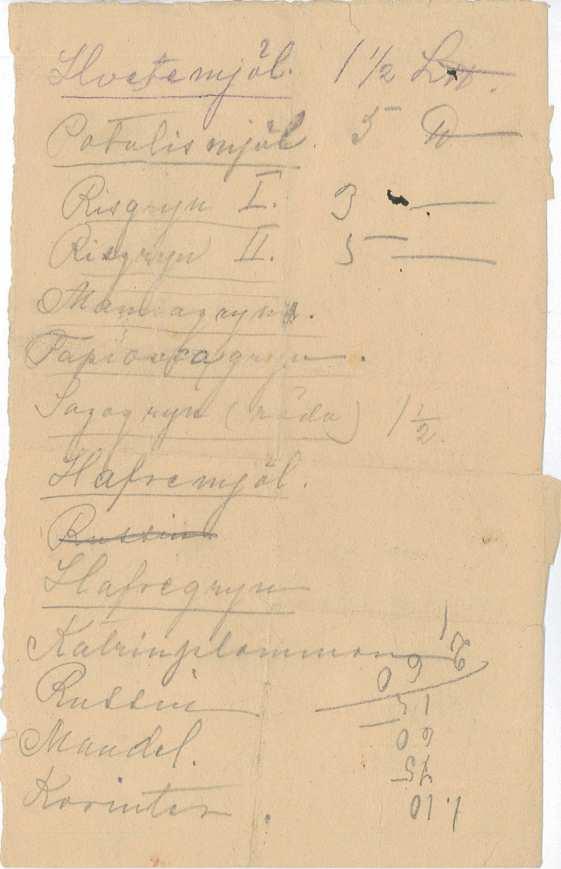 Hvetemjöl. 1 1/2 L℔.
Potatismjöl. 5 ℔
Risgryn I. 3 —
Risgryn II. 5 —
Mannagryn.
Tapiocagryn.
Sagogryn (röda) 1 1/2.
Hafremjöl.
Russin
Hafregryn
Katrinplommon
Russin
Mandel.
Korinter.
1.10
75
60